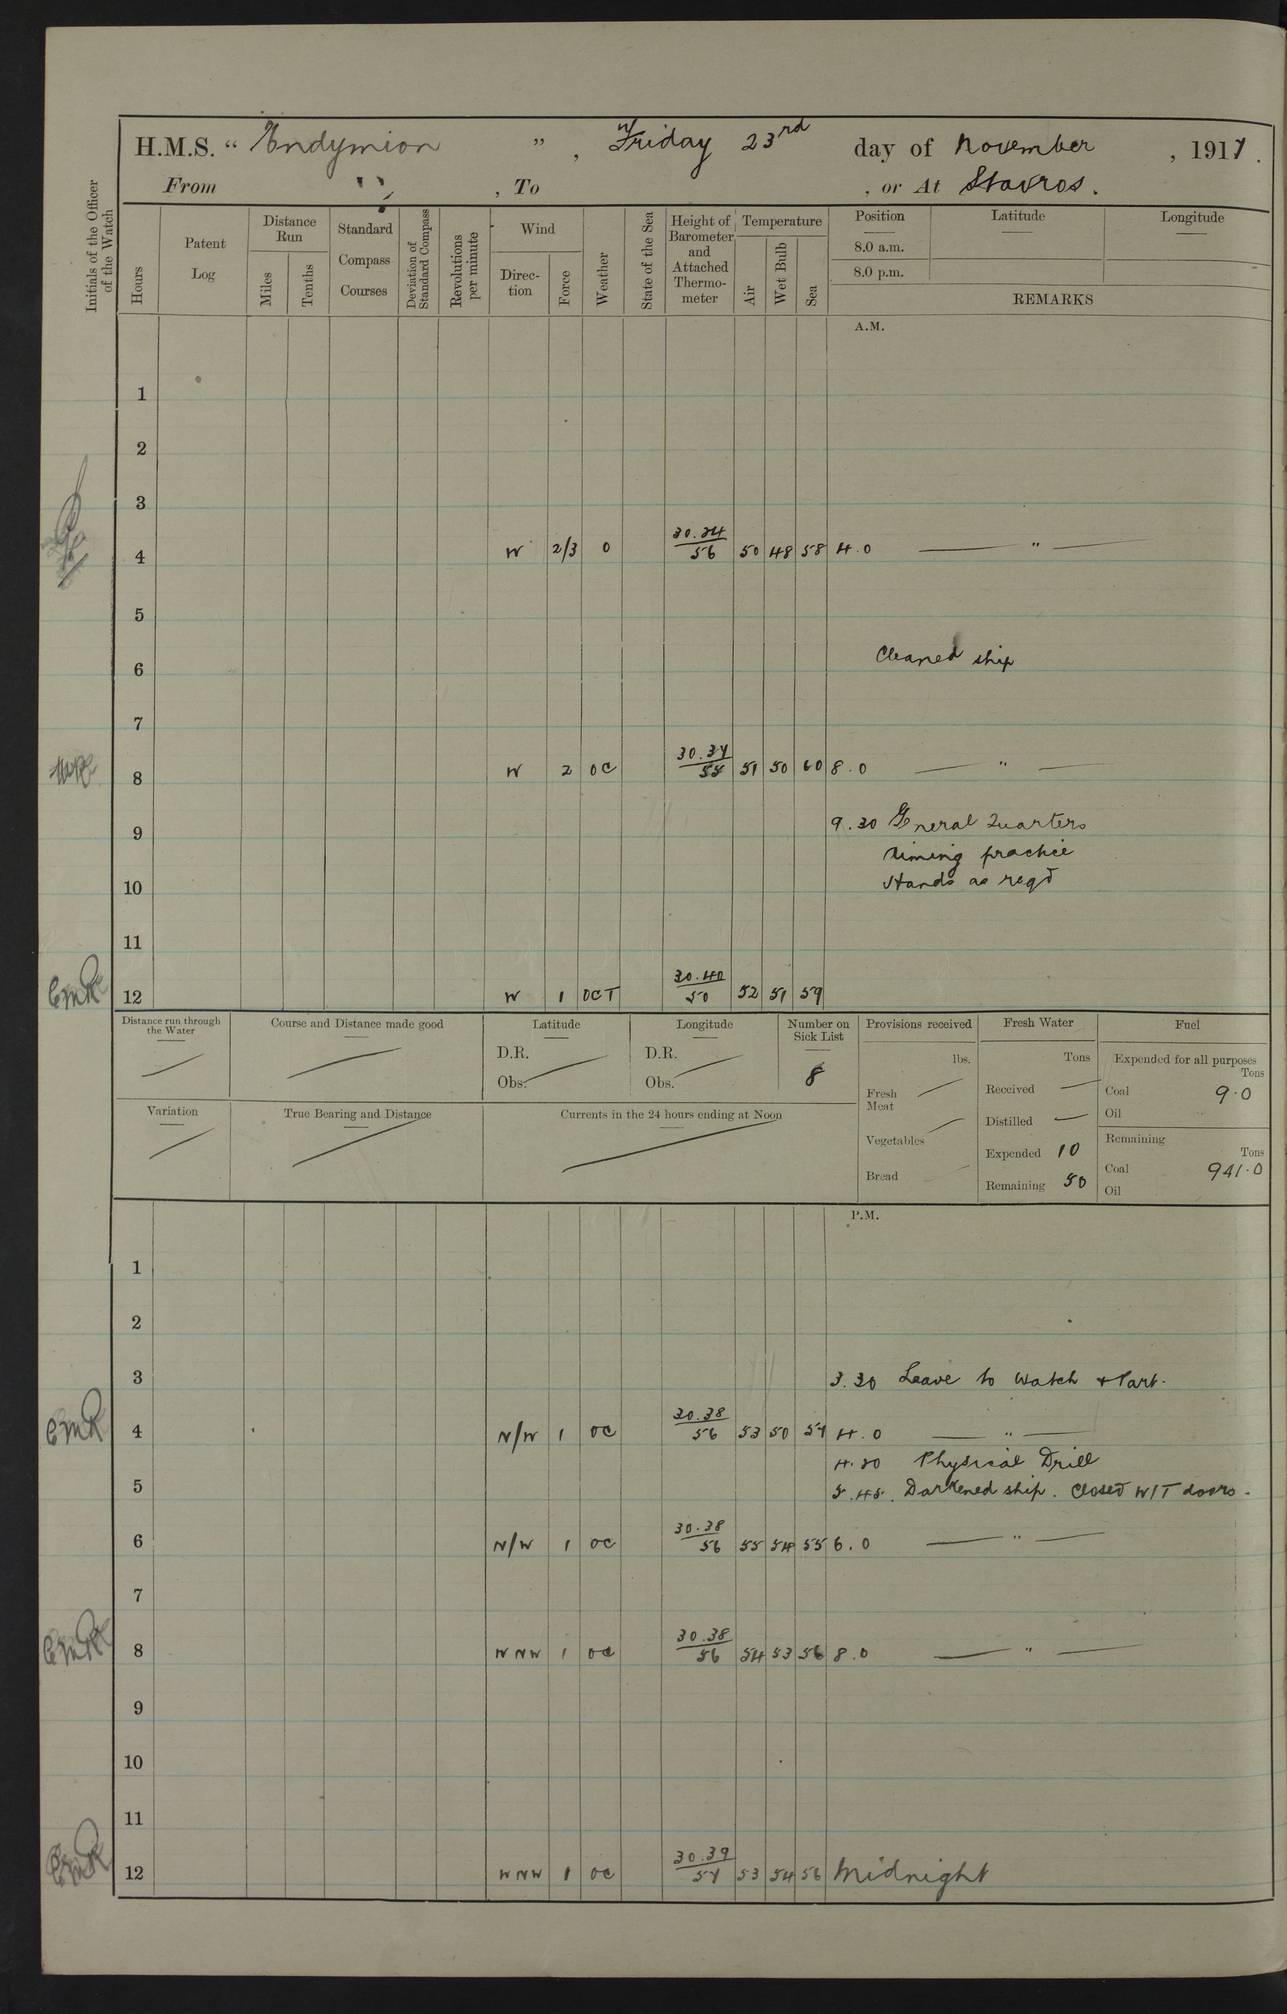 H.M.S. “ Endymion ”, Friday 23rd day of November, 1917.
From ", To , or At Stavros.
Initials of the Officer of the Watch
Hours
Patent Log
Distance Run
Miles
Tenths
Standard Compass Courses
Deviation of Standard Compass
Revolutions per minute
Wind
Direction
Force
Weather
State of the Sea
Height of Barometer and Attached Thermometer
Temperature
Air
Wet Bulb
Sea
Position
8.0 a.m.
8.0 p.m.
Latitude
Longitude
REMARKS
A.M.
1
2
3
4 W 2/3 O 30.34 56 50 48 58 4.0 — " —
5
6 Cleaned ship
7
8 W 2 OC 30.37 51 50 60 8.0 — " —
9 9.30 General Quarters
Aiming practice
10 Hands as reqd
11
EMR 12 W 1 OCT 30.40 50 52 51 59
Distance run through the Water
Course and Distance made good
Latitude
D.R.
Obs.
Longitude
D.R.
Obs.
Number on Sick List
8
Provisions received
lbs.
Fresh Meat
Vegetables
Bread
Fresh Water
Tons
Received
Distilled
Expended 10
Remaining 50
Fuel
Expended for all purposes
Tons
Coal 9.0
Oil
Remaining
Tons
Coal 941.0
Oil
Variation
True Bearing and Distance
Currents in the 24 hours ending at Noon
P.M.
1
2
3 3.30 Leave to Watch & Part.
EMR 4 N/W 1 OC 30.38 56 53 50 57 4.0 — " —
4.30 Physical Drill
5 5.45. Darkened ship. Closed W/T doors.
6 N/W 1 OC 30.38 56 55 54 55 6.0 — " —
7
EMR 8 WNW 1 OC 30.38 56 54 53 56 8.0 — " —
9
10
11
EMR 12 WNW 1 OC 30.39 57 53 54 56 Midnight